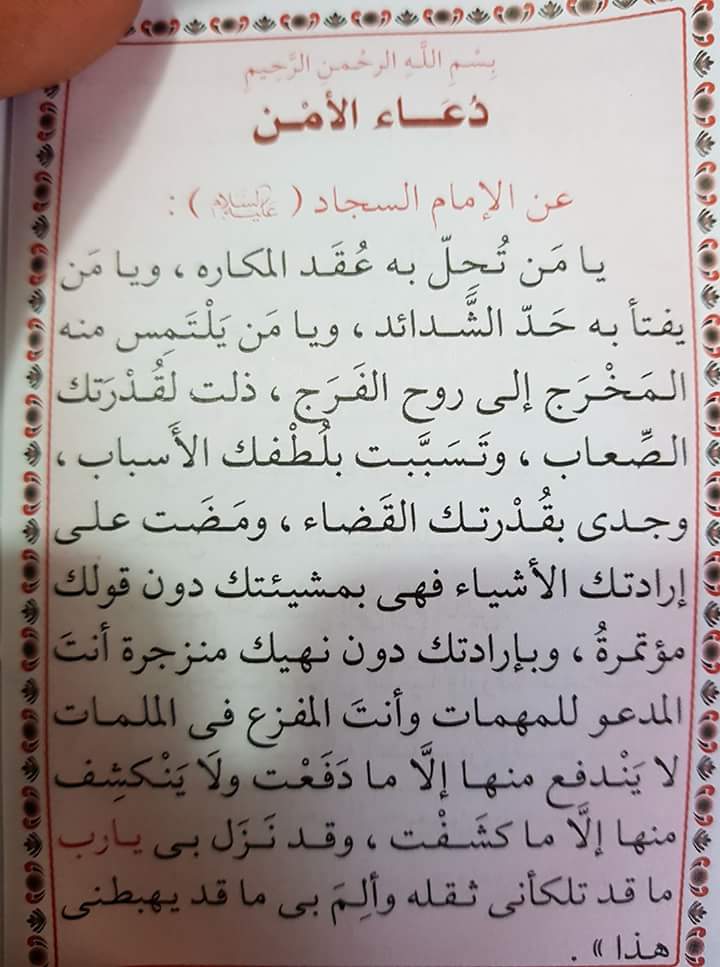 بِسْمِ اللَّهِ الرحْمنِ الرَّحِيمِ
دُعَـاء الأمْـن
عن الإمام السجاد ( عليه السلام ) :
يا مَن تُحلّ به عُقَد المكاره ، ويا مَن
يفتأ به حَدّ الشَّدائد ، ويا مَن يَلْتَمِس منه
المَخْرَج إلى روح الفَرَج ، ذلت لقُدْرَتك
الصِّعاب ، وتَسَبَّبت بلُطْفك الأَسباب ،
وجدى بقُدْرتك القَضاء ، ومَضَت على
إرادتك الأشياء فهى بمشيئتك دون قولك
مؤتمرةُ ، وبإرادتك دون نهيك منزجرة أنتَ
المدعو للمهمات وأنتَ المفزع فى الملمات
لا يَنْدفع منها إلَّا ما دَفَعْت ولَا يَنْكشِف
منها إلَّا ما كشَفْت ، وقد نَزَل بى يارب
ما قد تلكأنى ثقله وألِمَ بى ما قد يهبطنى
هذا » .